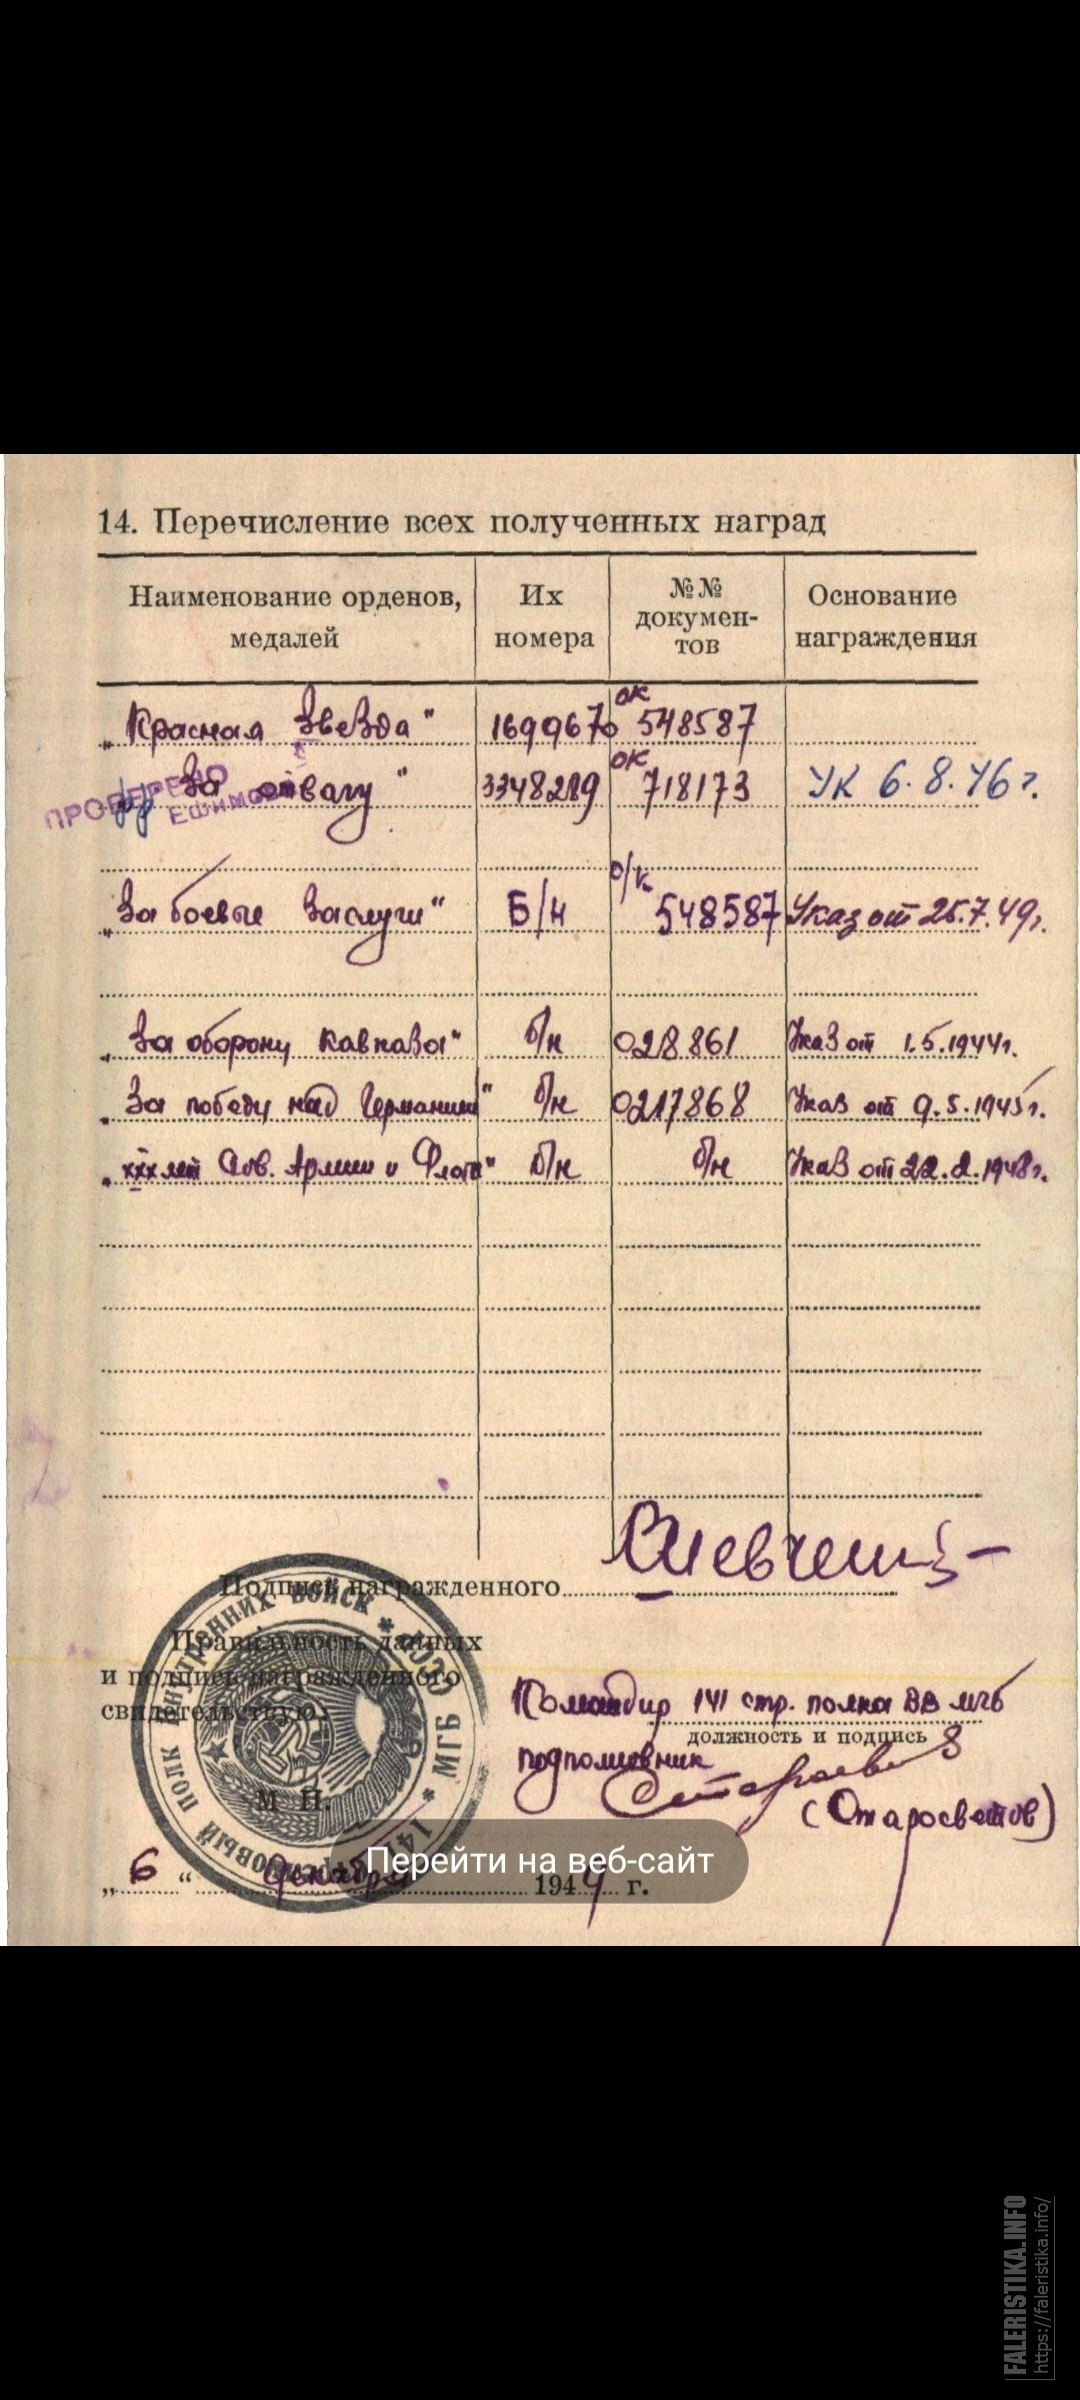 14. Перечисление всех полученных наград
Наименование орденов, медалей
Их номера
№№ документов
Основание награждения
„Красная Звезда“ 1699670 ок 548587
„За отвагу“ 3348289 ок 718173 УК 6.8.46 г.
ПРОВЕРЕНО
„За боевые заслуги“ Б/н о/к 548587 Указ от 25.7.49г.
„За оборону Кавказа“ б/н 028861 Указ от 1.5.1944г.
„За победу над Германией“ б/н 0217868 Указ от 9.5.1945г.
„xxx лет Сов. Армии и Флота“ б/н б/н Указ от 22.2.1948г.
Подпись награжденного
Правильность данных
и подпись награжденного
свидетельствую.
Командир 141 стр. полка ВВ МГБ
должность и подпись
подполковник
(Старосветов)
М П.
141 стрелковый полк внутренних войск * МГБ СССР *
„6“ декабря 1949 г.
Перейти на веб-сайт
FALERISTIKA.INFO
https://faleristika.info/